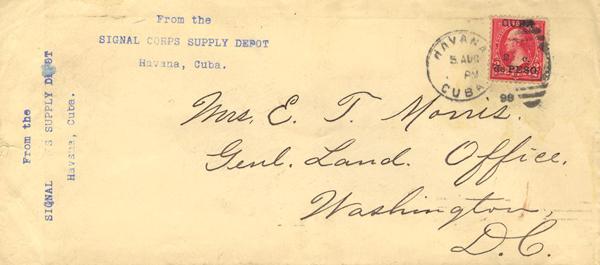 From the
SIGNAL CORPS SUPPLY DEPOT
Havana, Cuba.
From the
SIGNAL S SUPPLY DEPOT
Havana, Cuba.
HAVANA
5 AUG
PM
CUBA
99
CUBA
2 c.
de PESO
Mrs. E. T. Morris.
Genl. Land. Office.
Washington,
D.C.